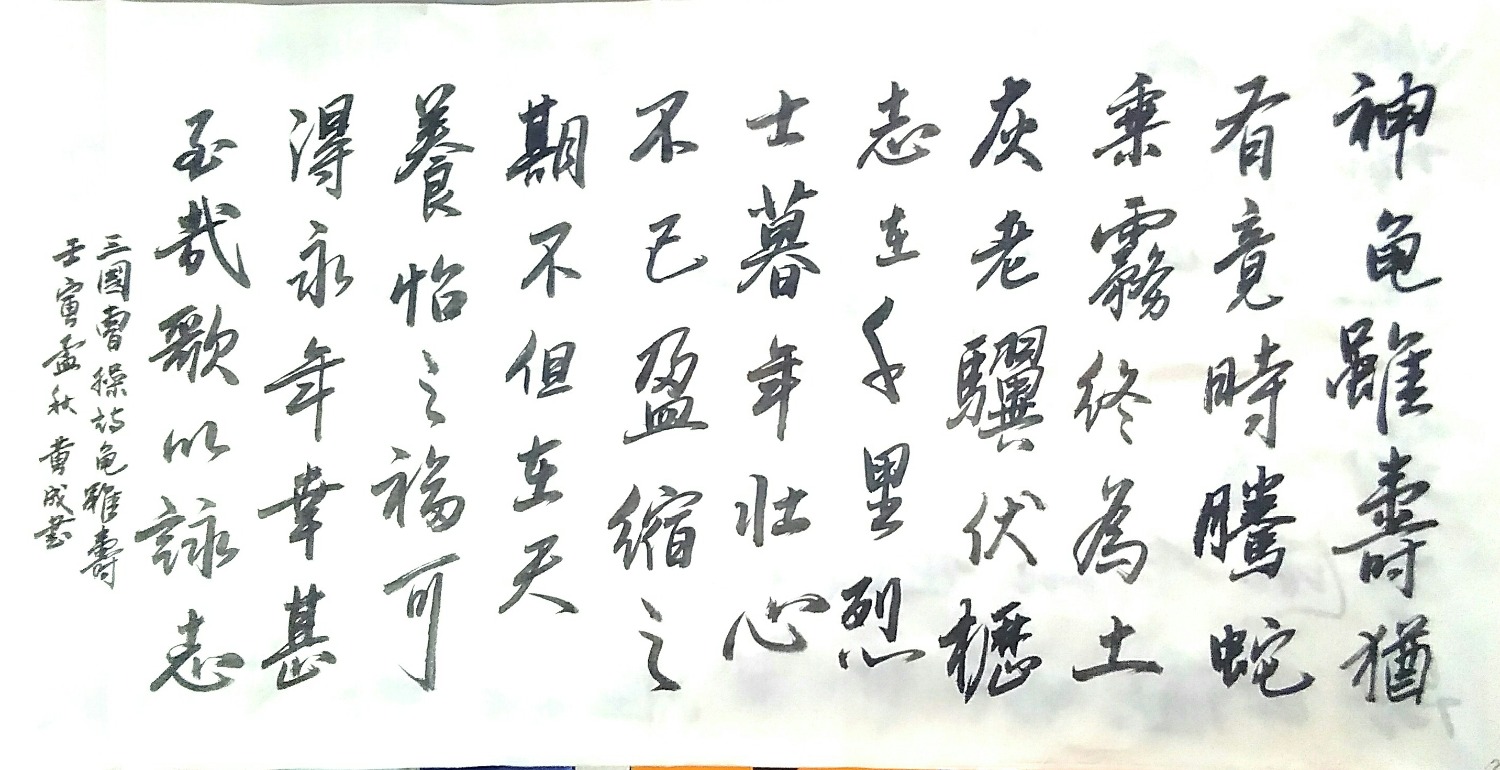 神龟雖壽猶
有竟時騰蛇
乘霧終為土
灰老驥伏櫪
志在千里烈
士暮年壯心
不已盈縮之
期不但在天
養怡之福可
得永年幸甚
至哉歌以詠志
三國曹操詩龟雖壽
壬寅孟秋黄成書